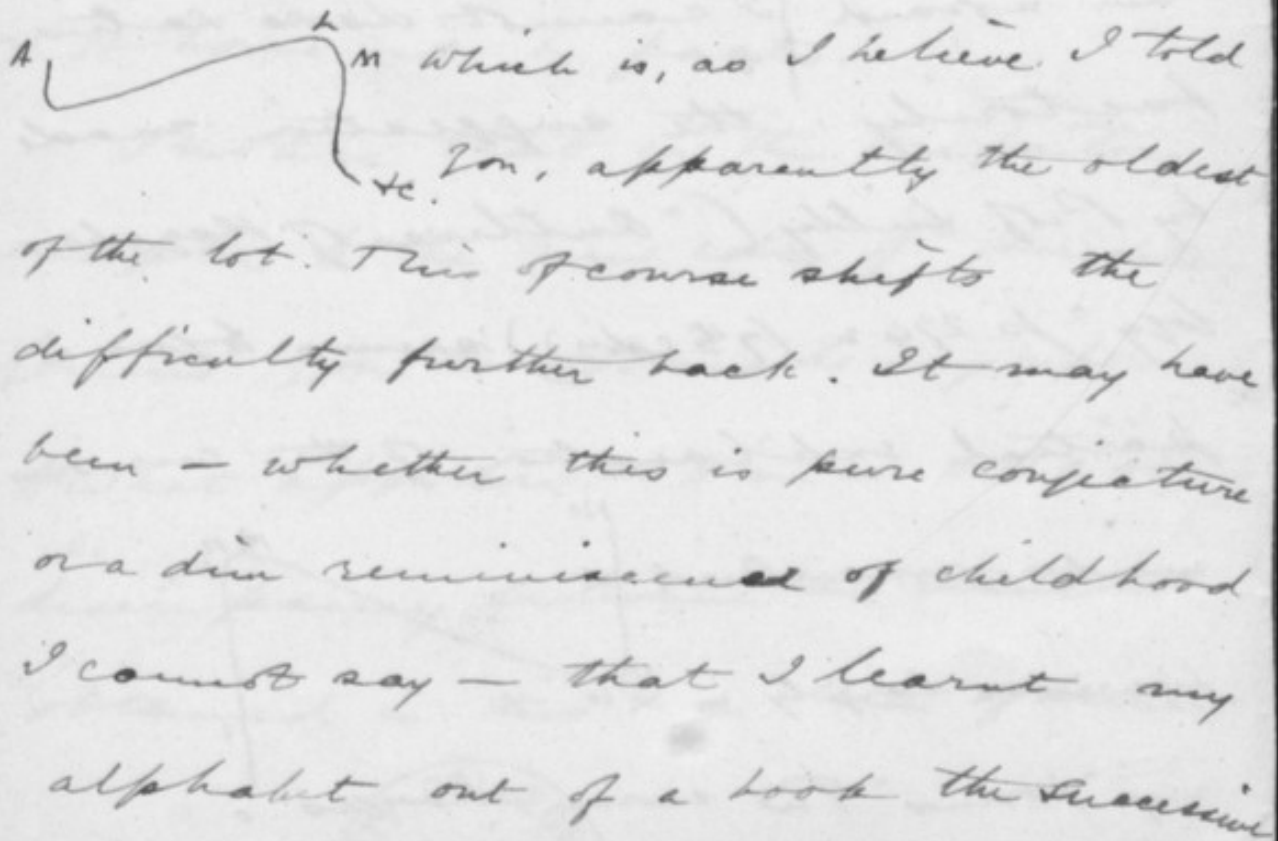 A L M which is, as I believe I told
&c. you, apparently the oldest
of the lot. This of course shifts the
difficulty further back. It may have
been – whether this is pure conjecture
or a dim reminiscence of childhood
I cannot say – that I learnt my
alphabet out of a book the successive